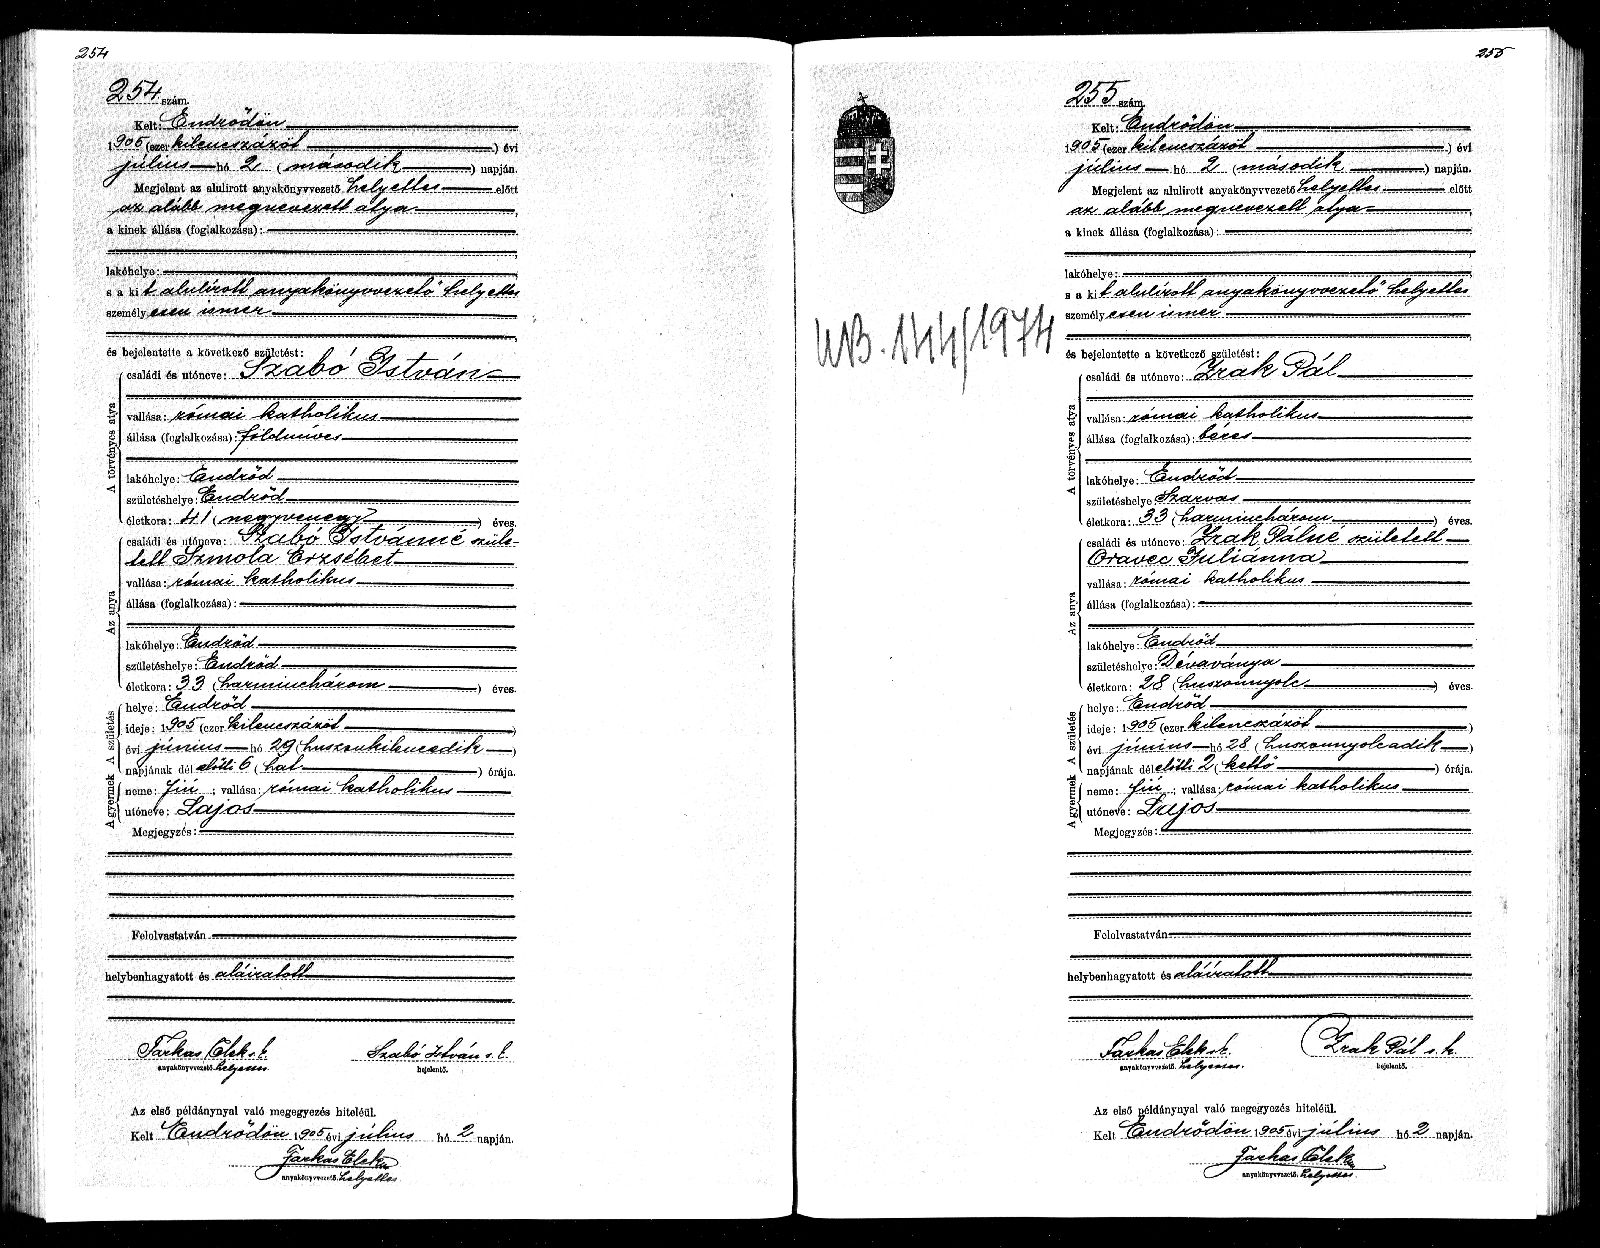 254
254 szám.
Kelt: Endrődön
1905 (ezer kilencszázöt ) évi
július hó 2 ( második ) napján.
Megjelent az alulirott anyakönyvvezető helyettes előtt
az alább megnevezett atya
a kinek állása (foglalkozása):
lakóhelye:
s a kit alulírott anyakönyvvezető helyettes
személyesen ismer
és bejelentette a következő születést:
A törvényes atya
családi és utóneve: Szabó István
vallása: római katholikus
állása (foglalkozása): földmüves
lakóhelye: Endrőd
születéshelye: Endrőd
életkora: 41 ( negyvenegy ) éves.
Az anya
családi és utóneve: Szabó Istvánné szüle-
tett Szmola Erzsébet
vallása: római katholikus
állása (foglalkozása):
lakóhelye: Endrőd
születéshelye: Endrőd
életkora: 33 ( harminchárom ) éves.
A születés
helye: Endrőd
ideje: 1905 (ezer kilencszázöt )
évi június hó 29 ( huszonkilencedik )
napjának dél előtti 6 ( hat ) órája.
A gyermek
neme: fiú ; vallása: római katholikus
utóneve: Lajos
Megjegyzés:
Felolvastatván
helybenhagyatott és aláíratott
Farkas Elek s. k. Szabó István s. k.
anyakönyvvezető. helyettes. bejelentő.
Az első példánynyal való megegyezés hiteléül.
Kelt Endrődön 1905 évi július hó 2 napján.
Farkas Elek
anyakönyvvezető. helyettes
255
255 szám.
UB. 144/1974
Kelt: Endrődön
1905 (ezer kilencszázöt ) évi
július hó 2 ( második ) napján.
Megjelent az alulirott anyakönyvvezető helyettes előtt
az alább megnevezett atya
a kinek állása (foglalkozása):
lakóhelye:
s a kit alulírott anyakönyvvezető helyettes
személyesen ismer
és bejelentette a következő születést:
A törvényes atya
családi és utóneve: Zrak Pál
vallása: római katholikus
állása (foglalkozása): béres
lakóhelye: Endrőd
születéshelye Szarvas
életkora: 33 ( harminchárom ) éves.
Az anya
családi és utóneve: Zrak Pálné született
Oravec Juliánna
vallása: római katholikus
állása (foglalkozása):
lakóhelye: Endrőd
születéshelye: Dévaványa
életkora: 28 ( huszonnyolc ) éves.
A születés
helye: Endrőd
ideje: 1905 (ezer kilencszázöt )
évi június hó 28 ( huszonnyolcadik )
napjának dél előtti 2 ( kettő ) órája.
A gyermek
neme: fiú ; vallása: római katholikus
utóneve: Lajos
Megjegyzés:
Felolvastatván
helybenhagyatott és aláíratott
Farkas Elek s. k. Zrak Pál s. k.
anyakönyvvezető. helyettes. bejelentő.
Az első példánynyal való megegyezés hiteléül.
Kelt Endrődön 1905 évi július hó 2 napján.
Farkas Elek
anyakönyvvezető. helyettes.